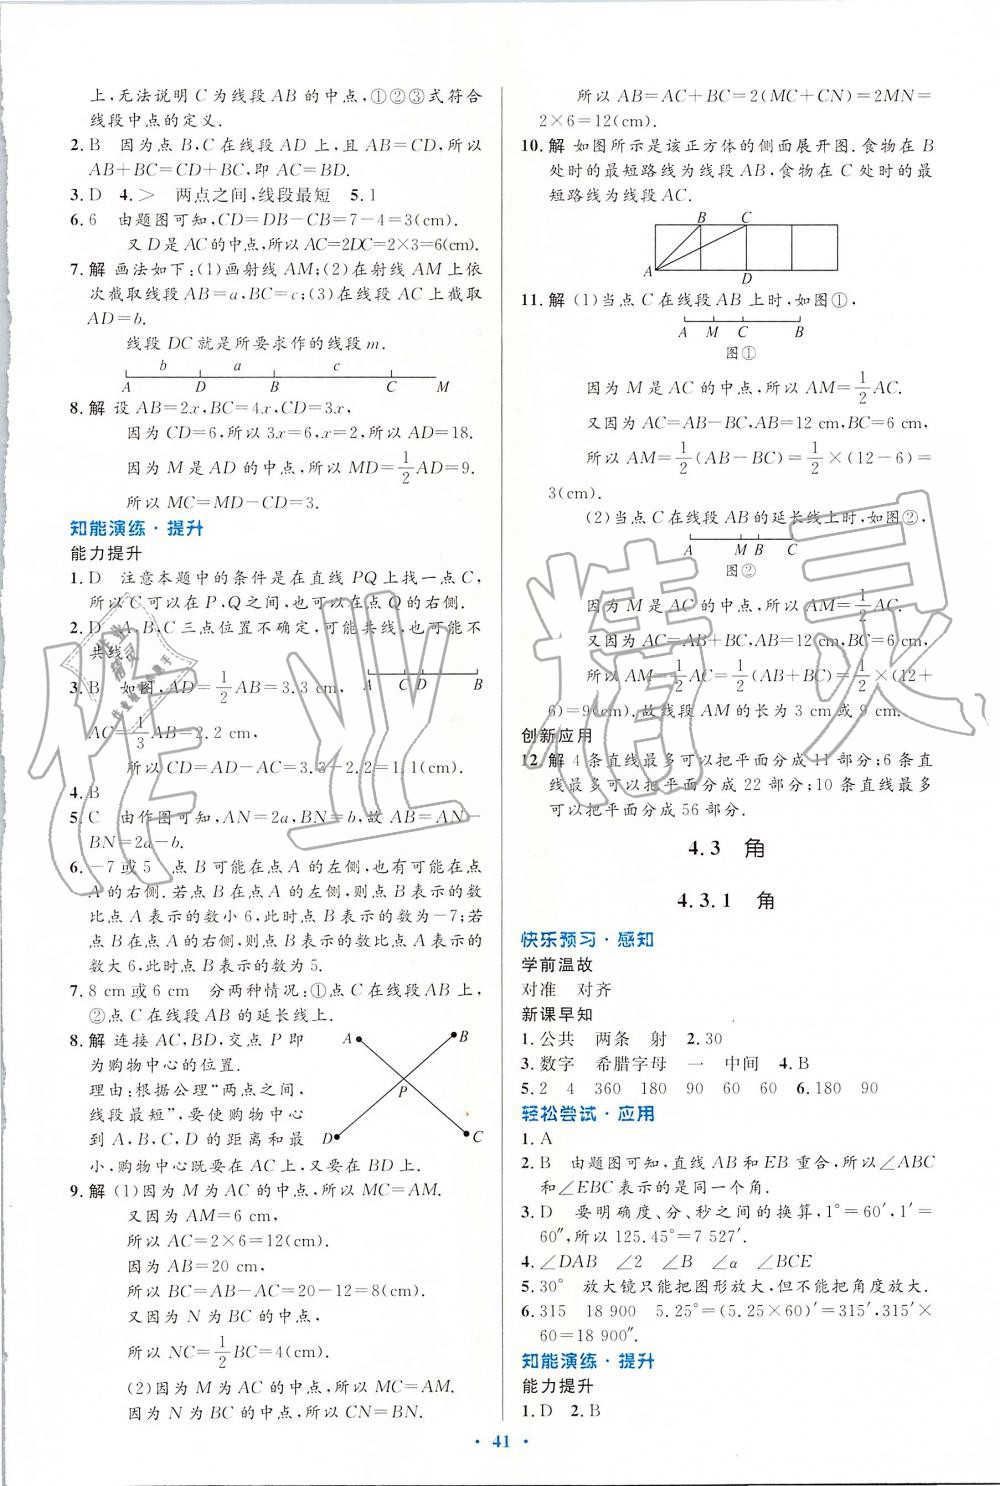 上,无法说明 C 为线段 AB 的中点,①②③式符合
线段中点的定义.
2. B 因为点 B,C 在线段 AD 上,且 AB=CD,所以
AB+BC=CD+BC,即 AC=BD.
3. D 4. > 两点之间,线段最短 5. 1
6. 6 由题图可知,CD=DB-CB=7-4=3(cm).
又 D 是 AC 的中点,所以 AC=2DC=2×3=6(cm).
7. 解 画法如下:(1)画射线 AM;(2)在射线 AM 上依
次截取线段 AB=a,BC=c;(3)在线段 AC 上截取
AD=b.
线段 DC 就是所要求作的线段 m.
b a
A D B C M
8. 解 设 AB=2x,BC=4x,CD=3x,
因为 CD=6,所以 3x=6,x=2,所以 AD=18.
因为 M 是 AD 的中点,所以 MD=1/2AD=9.
所以 MC=MD-CD=3.
知能演练·提升
能力提升
1. D 注意本题中的条件是在直线 PQ 上找一点 C,
所以 C 可以在 P,Q 之间,也可以在点 Q 的右侧.
2. D A,B,C 三点位置不确定,可能共线,也可能不
共线.
3. B 如图,AD=1/2AB=3.3 cm,
A C D B
AC=1/3AB=2.2 cm,
所以 CD=AD-AC=3.3-2.2=1.1(cm).
4. B
5. C 由作图可知,AN=2a,BN=b,故 AB=AN-
BN=2a-b.
6. -7或5 点 B 可能在点 A 的左侧,也有可能在点
A 的右侧.若点 B 在点 A 的左侧,则点 B 表示的数
比点 A 表示的数小 6,此时点 B 表示的数为-7;若
点 B 在点 A 的右侧,则点 B 表示的数比点 A 表示的
数大 6,此时点 B 表示的数为 5.
7. 8 cm 或 6 cm 分两种情况:①点 C 在线段 AB 上,
②点 C 在线段 AB 的延长线上.
8. 解 连接 AC,BD,交点 P 即
为购物中心的位置.
理由:根据公理“两点之间,
线段最短”,要使购物中心
到 A,B,C,D 的距离和最
小,购物中心既要在 AC 上,又要在 BD 上.
A B P D C
9. 解 (1)因为 M 为 AC 的中点,所以 MC=AM.
又因为 AM=6 cm,
所以 AC=2×6=12(cm).
因为 AB=20 cm,
所以 BC=AB-AC=20-12=8(cm).
又因为 N 为 BC 的中点,
所以 NC=1/2BC=4(cm).
(2)因为 M 为 AC 的中点,所以 MC=AM.
因为 N 为 BC 的中点,所以 CN=BN.
所以 AB=AC+BC=2(MC+CN)=2MN=
2×6=12(cm).
10. 解 如图所示是该正方体的侧面展开图.食物在 B
处时的最短路线为线段 AB,食物在 C 处时的最
短路线为线段 AC.
B C
A D
11. 解 (1)当点 C 在线段 AB 上时,如图①,
A M C B
图①
因为 M 是 AC 的中点,所以 AM=1/2AC.
又因为 AC=AB-BC,AB=12 cm,BC=6 cm,
所以 AM=1/2(AB-BC)=1/2×(12-6)=
3(cm).
(2)当点 C 在线段 AB 的延长线上时,如图②,
A M B C
图②
因为 M 是 AC 的中点,所以 AM=1/2AC.
又因为 AC=AB+BC,AB=12 cm,BC=6 cm,
所以 AM=1/2AC=1/2(AB+BC)=1/2×(12+
6)=9(cm).故线段 AM 的长为 3 cm 或 9 cm.
创新应用
12. 解 4 条直线最多可以把平面分成 11 部分;6 条直
线最多可以把平面分成 22 部分;10 条直线最多
可以把平面分成 56 部分.
4.3 角
4.3.1 角
快乐预习·感知
学前温故
对准 对齐
新课早知
1. 公共 两条 射 2. 30
3. 数字 希腊字母 一 中间 4. B
5. 2 4 360 180 90 60 60 6. 180 90
轻松尝试·应用
1. A
2. B 由题图可知,直线 AB 和 EB 重合,所以∠ABC
和∠EBC 表示的是同一个角.
3. D 要明确度、分、秒之间的换算,1°=60′,1′=
60″,所以 125.45°=7 527′.
4. ∠DAB ∠2 ∠B ∠α ∠BCE
5. 30° 放大镜只能把图形放大,但不能把角度放大.
6. 315 18 900 5.25°=(5.25×60)′=315′,315′×
60=18 900″.
知能演练·提升
能力提升
1. D 2. B
· 41 ·
作业精灵